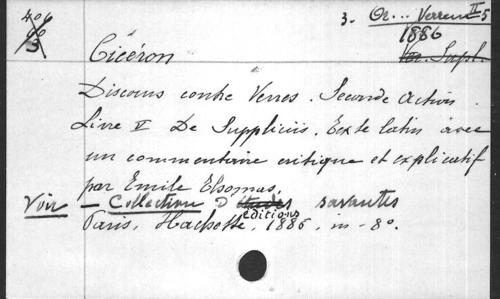 406
90
3
3. Or... Verrem II 5
1886
Ver. Supl.
Cicéron
Discours contre Verres. Seconde Action.
Livre V De Suppliciis. Texte latin avec
un commentaire critique et explicatif
par Emile Thomas.
Voir — Collection D'études savantes
éditions
Paris, Hachette, 1886, in-8o.